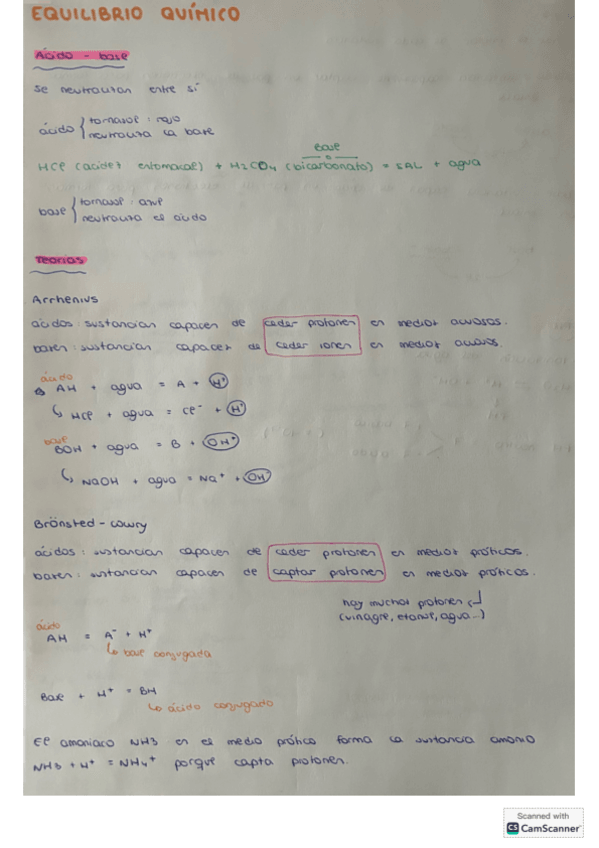 EQUILIBRIO QUÍMICO
Ácido - base
se neutralizan entre sí
ácido { tornasol : rojo
neutraliza la base
base
HCl (acidez estomacal) + H2CO4 (bicarbonato) = SAL + agua
base { tornasol : azul
neutraliza el ácido
Teorías
Arrhenius
ácidos : sustancias capaces de ceder protones en medios acuosos.
bases : sustancias capaces de ceder iones en medios acuosos.
ácido
AH + agua = A + H+
↳ HCl + agua = Cl- + H+
base
BOH + agua = B + OH-
↳ NaOH + agua = Na+ + OH-
Brönsted - Lowry
ácidos : sustancias capaces de ceder protones en medios próticos.
bases : sustancias capaces de captar protones en medios próticos.
hay muchos protones
(vinagre, etanol, agua...)
ácido
AH = A- + H+
↳ base conjugada
Base + H+ = BH
↳ ácido conjugado
El amoniaco NH3 en el medio prótico forma la sustancia amonio
NH3 + H+ = NH4+ porque capta protones.
Scanned with
CS CamScanner